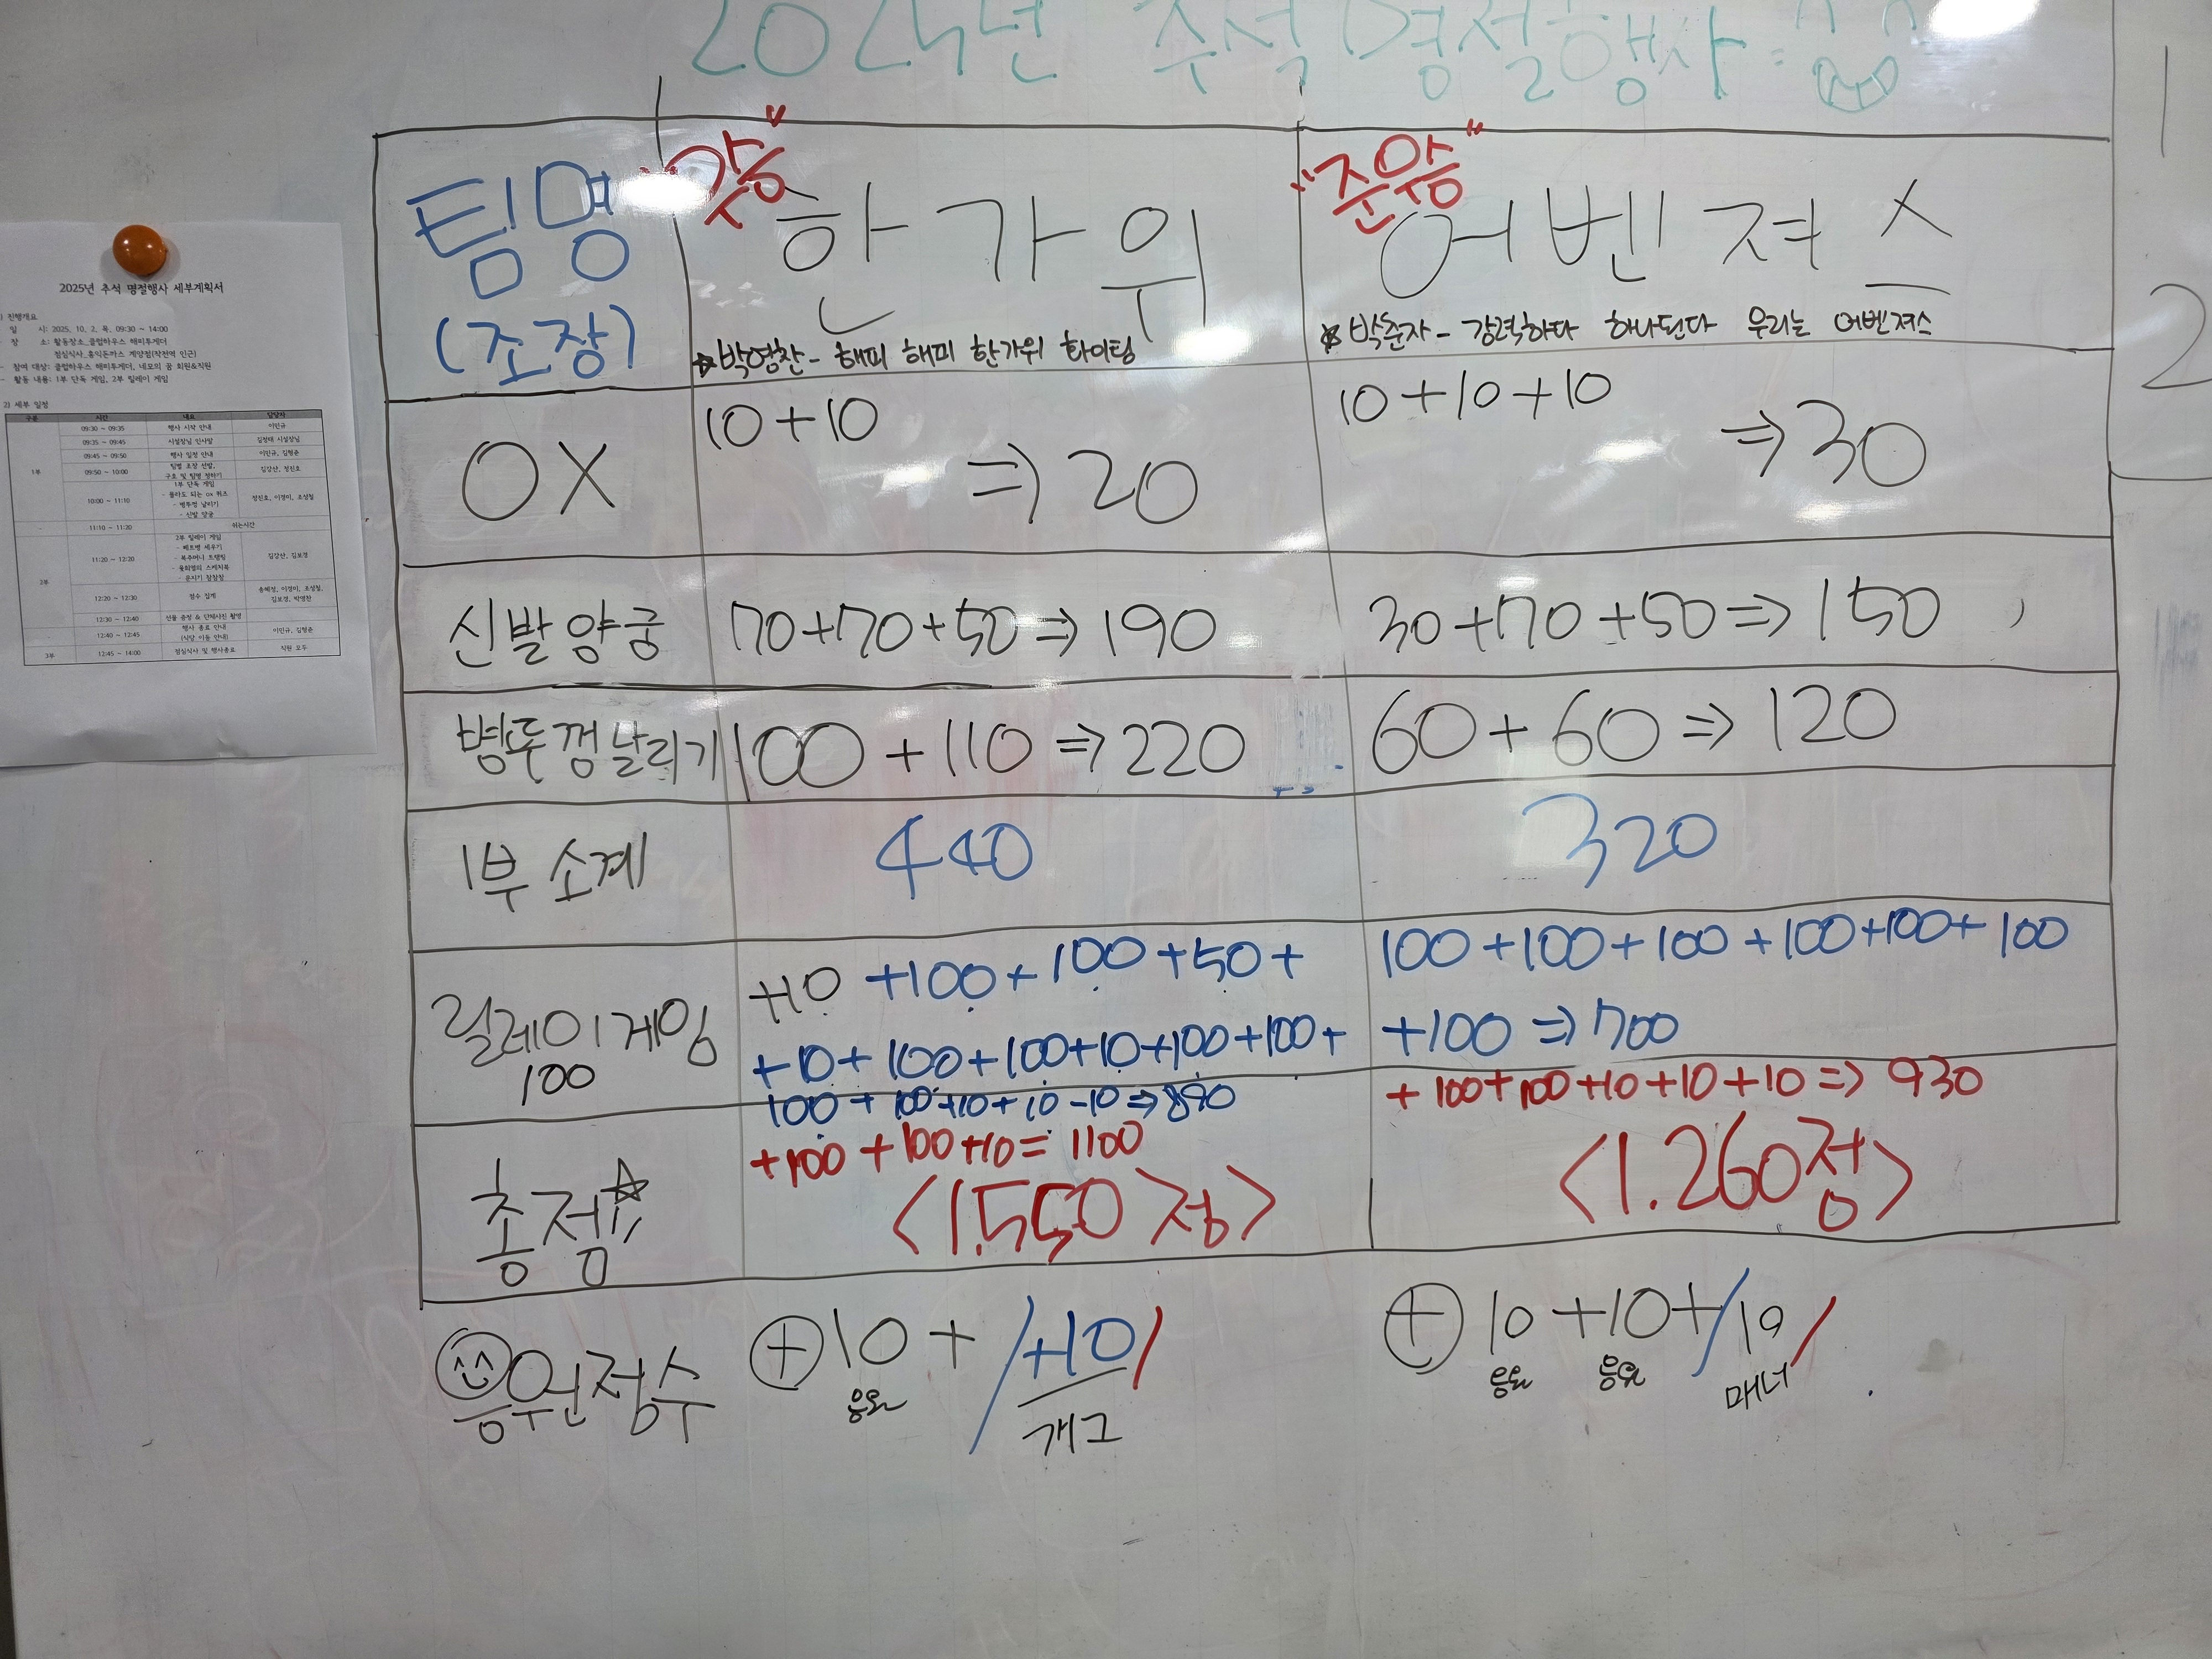 2025년 추석 명절행사
팀명
(조장)
한가위
박영찬 - 해피 해피 한가위 화이팅
"준우승"
어벤져스
박춘자 - 강력하다 하나된다 우리는 어벤져스
OX
10+10
⇒ 20
10+10+10
⇒ 30
신발양궁
70+70+50 ⇒ 190
30+70+50 ⇒ 150
병뚜껑날리기
100+110 ⇒ 220
60+60 ⇒ 120
1부 소계
440
320
릴레이게임
100
+10 +100+100+50+
+10+100+100+10+100+100+
100+100+10+10-10 ⇒ 890
+100+100+10 = 1100
100+100+100+100+100+100
+100 ⇒ 700
+100+100+10+10+10 ⇒ 930
총점☆
<1.550점>
<1.260점>
응원점수
⊕ 10 + /+10/
응원
개그
⊕ 10 +10+/10/
응원 응원 매너
1
2
2025년 추석 명절행사 세부계획서
1) 진행개요
일 시: 2025. 10. 2. 목. 09:30 ~ 14:00
장 소: 활동장소_클럽하우스 해피투게더
점심식사_홍익돈까스 계양점(작전역 인근)
- 참여 대상: 클럽하우스 해피투게더, 네모의 꿈 회원&직원
- 활동 내용: 1부 단독 게임, 2부 릴레이 게임
2) 세부 일정
구분 시간 내용 담당자
1부
09:30 ~ 09:35 행사 시작 안내 이민규
09:35 ~ 09:45 시설장님 인사말 김정태 시설장님
09:45 ~ 09:50 행사 일정 안내 이민규, 김형준
09:50 ~ 10:00 팀별 조장 선발, 구호 및 팀명 정하기 김강산, 정진호
10:00 ~ 11:10 1부 단독 게임 정진호, 이경미, 조성철
- 몰라도 되는 ox 퀴즈
- 병뚜껑 날리기
- 신발 양궁
- 11:10 ~ 11:20 쉬는시간
2부
11:20 ~ 12:20 2부 릴레이 게임 김강산, 김보경
- 페트병 세우기
- 복주머니 트램펄
- 물티병의 스케치북
12:20 ~ 12:30 점수 집계 송혜정, 이경미, 조성철, 김보경, 박영찬
12:30 ~ 12:40 선물 증정 & 단체사진 촬영
12:40 ~ 12:45 행사 종료 안내 (식당 이동 안내) 이민규, 김형준
3부 12:45 ~ 14:00 점심식사 및 행사종료 직원 모두